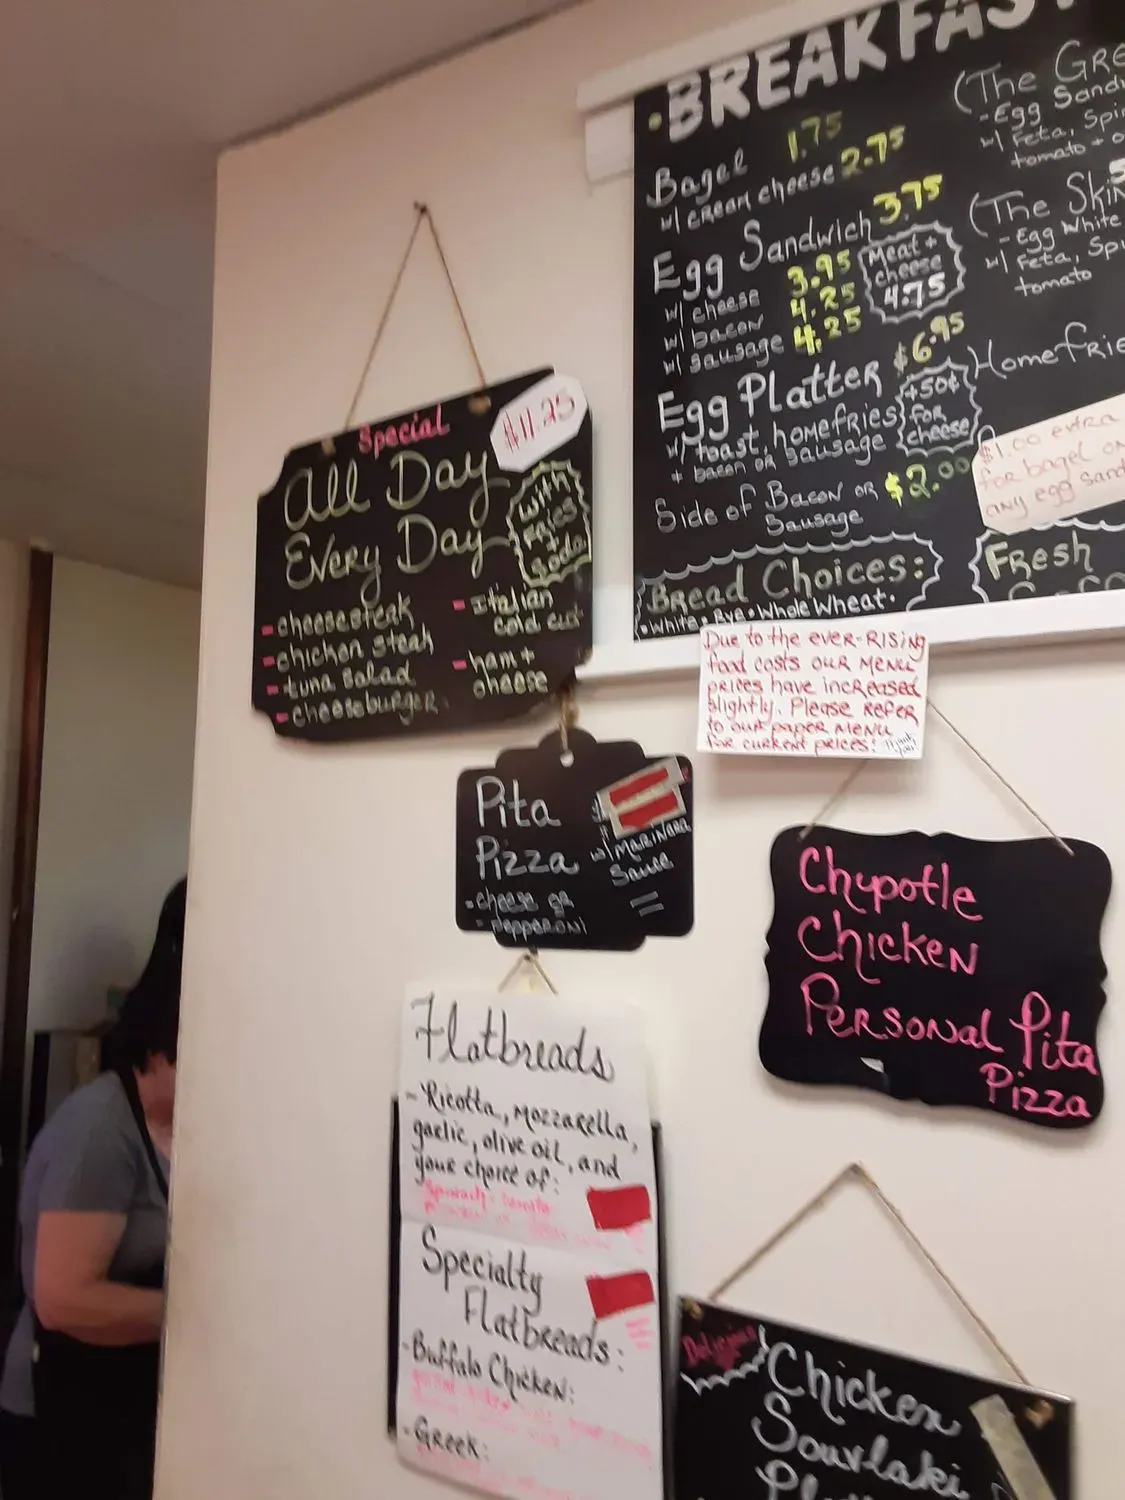 BREAKFAST
Bagel 1.75
w/ cream cheese 2.75
Egg Sandwich 3.75
w/ cheese 3.95
w/ bacon 4.25
w/ sausage 4.25
Meat +
cheese
4.75
Egg Platter $6.95
w/ toast, homefries
+ bacon or sausage
+50¢
for
cheese
Side of Bacon or $2.00
Sausage
Bread Choices:
• White • Rye • Whole Wheat •
(The
- Egg
w/ Feta,
tomato +
(The
- Egg White
w/ Feta,
tomato
$1.00 extra
for bagel on
any egg
Fresh
Special
$11.25
All Day
Every Day
With
Fries
+
Soda
- cheesesteak
- chicken steak
- tuna salad
- cheeseburger
- Italian
cold cut
- ham +
cheese
Due to the ever-rising
food costs our menu
prices have increased
slightly. Please refer
to our paper menu
for current prices!
Pita
Pizza
- cheese or
- pepperoni
w/ Marinara
Sauce
Chypotle
Chicken
Personal Pita
Pizza
Flatbreads
- Ricotta, mozzarella,
garlic, olive oil, and
your choice of:
Specialty
Flatbreads:
- Buffalo Chicken:
- Greek:
Delicious
Chicken
Souvlaki